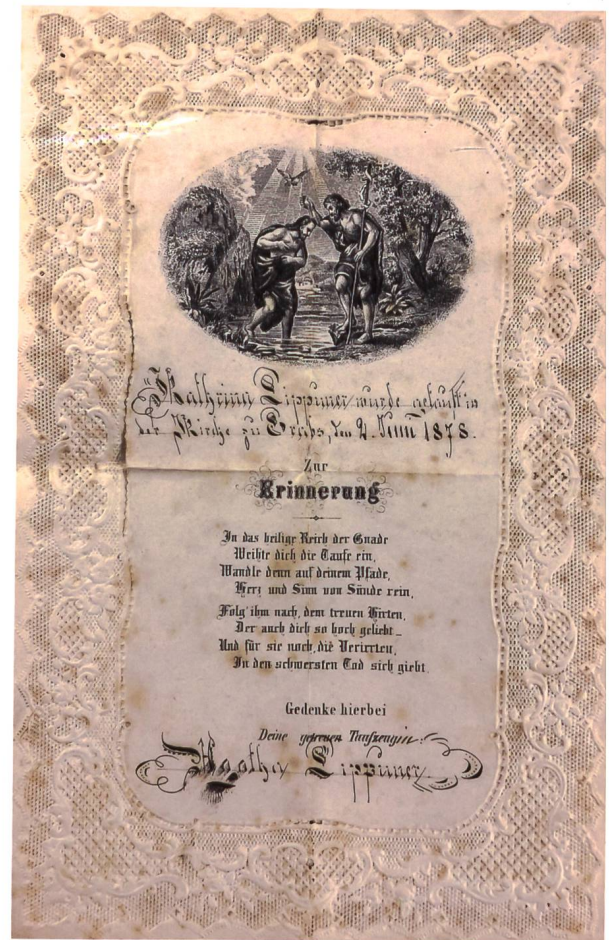 Kathrina Lippuner wurde getauft in
der Kirche zu Grabs, den 2. Juni 1878.
Zur
Erinnerung
In das heilige Reich der Gnade
Weihte dich die Taufe ein,
Wandle denn auf deinem Pfade,
Herz und Sinn von Sünde rein,
Folg' ihm nach, dem treuen Hirten,
Der auch dich so hoch geliebt –
Und für sie noch, die Verirrten,
In den schwersten Tod sich giebt.
Gedenke hierbei
Deine getreuen Taufzeugin:
Agatha Lippuner